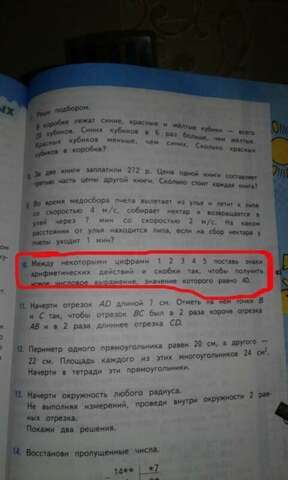 Реши подбором.
В коробке лежат синие, красные и жёлтые кубики — всего
20 кубиков. Синих кубиков в 6 раз больше, чем жёлтых.
Красных кубиков меньше, чем синих. Сколько красных
кубиков в коробке?
За две книги заплатили 272 р. Цена одной книги составляет
третью часть цены другой книги. Сколько стоит каждая книга?
Во время медосбора пчела вылетает из улья и летит к липе
со скоростью 4 м/с, собирает нектар и возвращается в
улей через 7 мин со скоростью 2 м/с. На каком
расстоянии от улья находится липа, если на сбор нектара у
пчелы уходит 1 мин?
10. Между некоторыми цифрами 1 2 3 4 5 поставь знаки
арифметических действий и скобки так, чтобы получить
новое числовое выражение, значение которого равно 40.
11. Начерти отрезок AD длиной 7 см. Отметь на нём точки B
и C так, чтобы отрезок BC был в 2 раза короче отрезка
AB и в 2 раза длиннее отрезка CD.
12. Периметр одного прямоугольника равен 20 см, а другого —
22 см. Площадь каждого из этих многоугольников 24 см².
Начерти в тетради эти прямоугольники.
13. Начерти окружность любого радиуса.
Не выполняя измерений, проведи внутри окружности 2 рав-
ных отрезка.
Покажи два решения.
14. Восстанови пропущенные числа.
14** *7